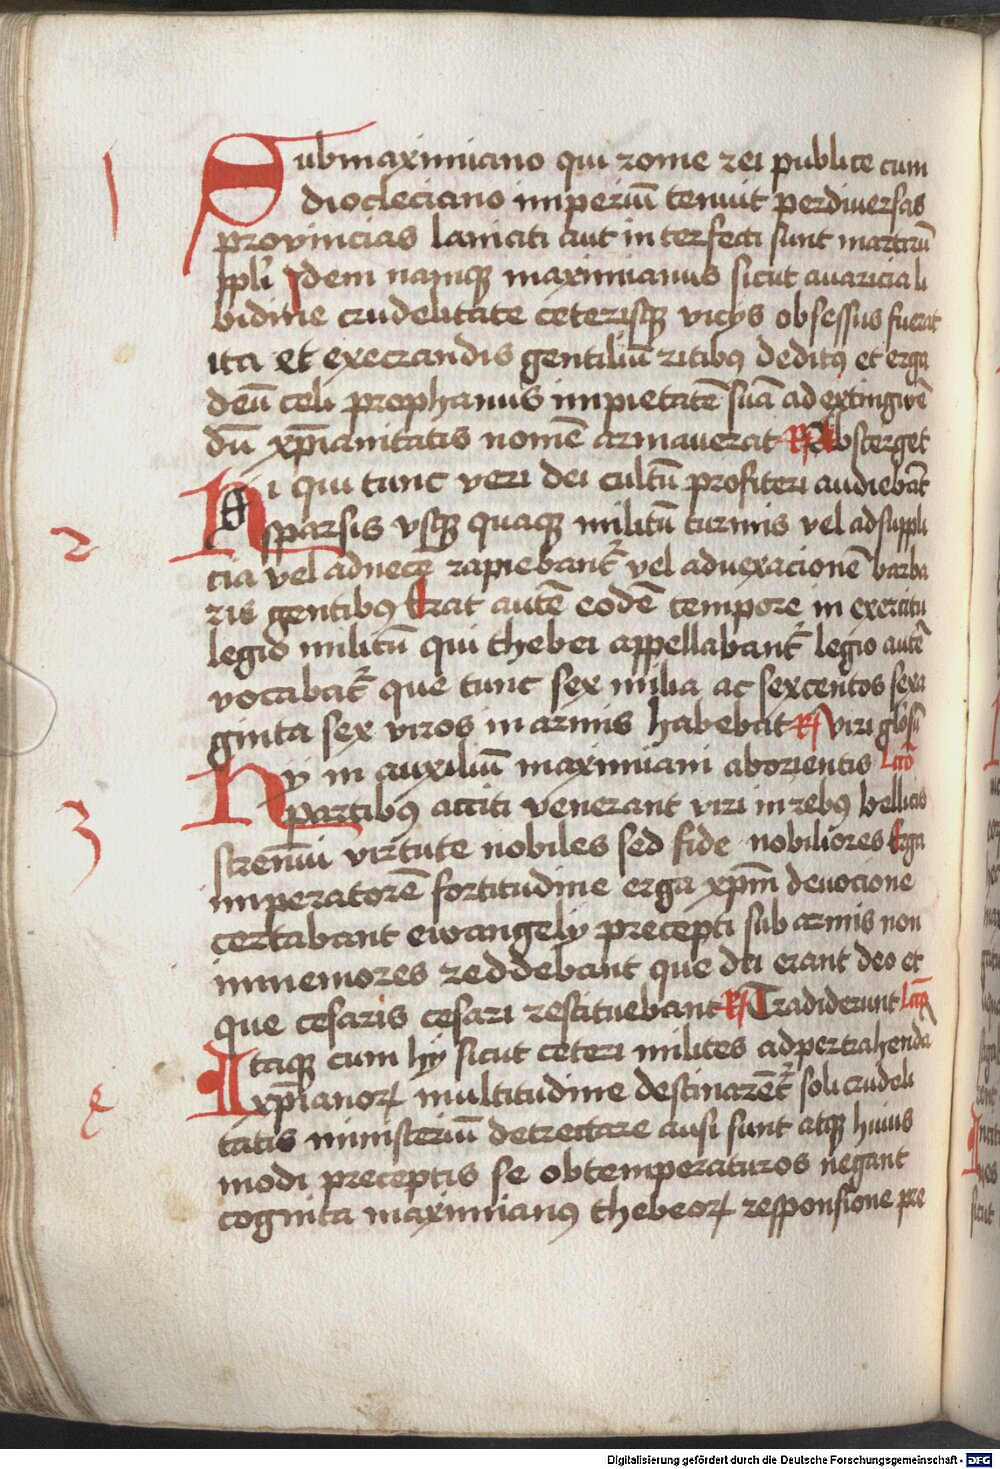 1
Submaximiano qui rome rei publice cum
diocleciano imperiū tenuit perdiuersas
provincias laniati aut interfecti sunt martirū
ppłi Idem namqꝫ maximianus sicut auaricia li
bidine crudelitate ceterisqꝫ vicijs obsessus fuerat
ita et execrandis gentiliū ritibꝰ deditꝰ et erga
deū celi prophanus impietatē suā ad extingwē
dū xp̄ianitatis nomē armauerat R Absterget
2
Hi qui tunc veri dei cultū profiteri audiebāt
sparsis vsqꝫ quaqꝫ militū turmis vel adsuppli
cia vel adnecē rapiebant᷑ vel aduexacionē barba
ris gentibꝰ Erat autē eodē tempore in exercitu
legio militū qui thebei appellabant᷑ legio autē
vocabat᷑ que tunc sex milia ac sexcentos sexa
ginta sex viros in armis habebat R viri glōsū
3
Hy in auxiliū maximiani aborientis Lcō
partibꝰ acciti venerant viri in rebꝰ bellicis
strenuu virtute nobiles sed fide nobiliores Erga
imperatorē fortitudine erga xp̄m deuocione
certabant ewangely precepti sub armis non
inmemores reddebant que dei erant deo et
que cesaris cesari restituebant R Tradiderunt Lcō
4
Itaqꝫ cum hy sicut ceteri milites adpertrahenda
xp̄ianoꝝ multitudine destinarēt᷑ soli crudeli
tatis ministeriū detrectare ausi sunt atqꝫ huius
modi preceptis se obtemperaturos negant
cognita maximianꝰ thebeoꝝ responsione pre
Digitalisierung gefördert durch die Deutsche Forschungsgemeinschaft - DFG